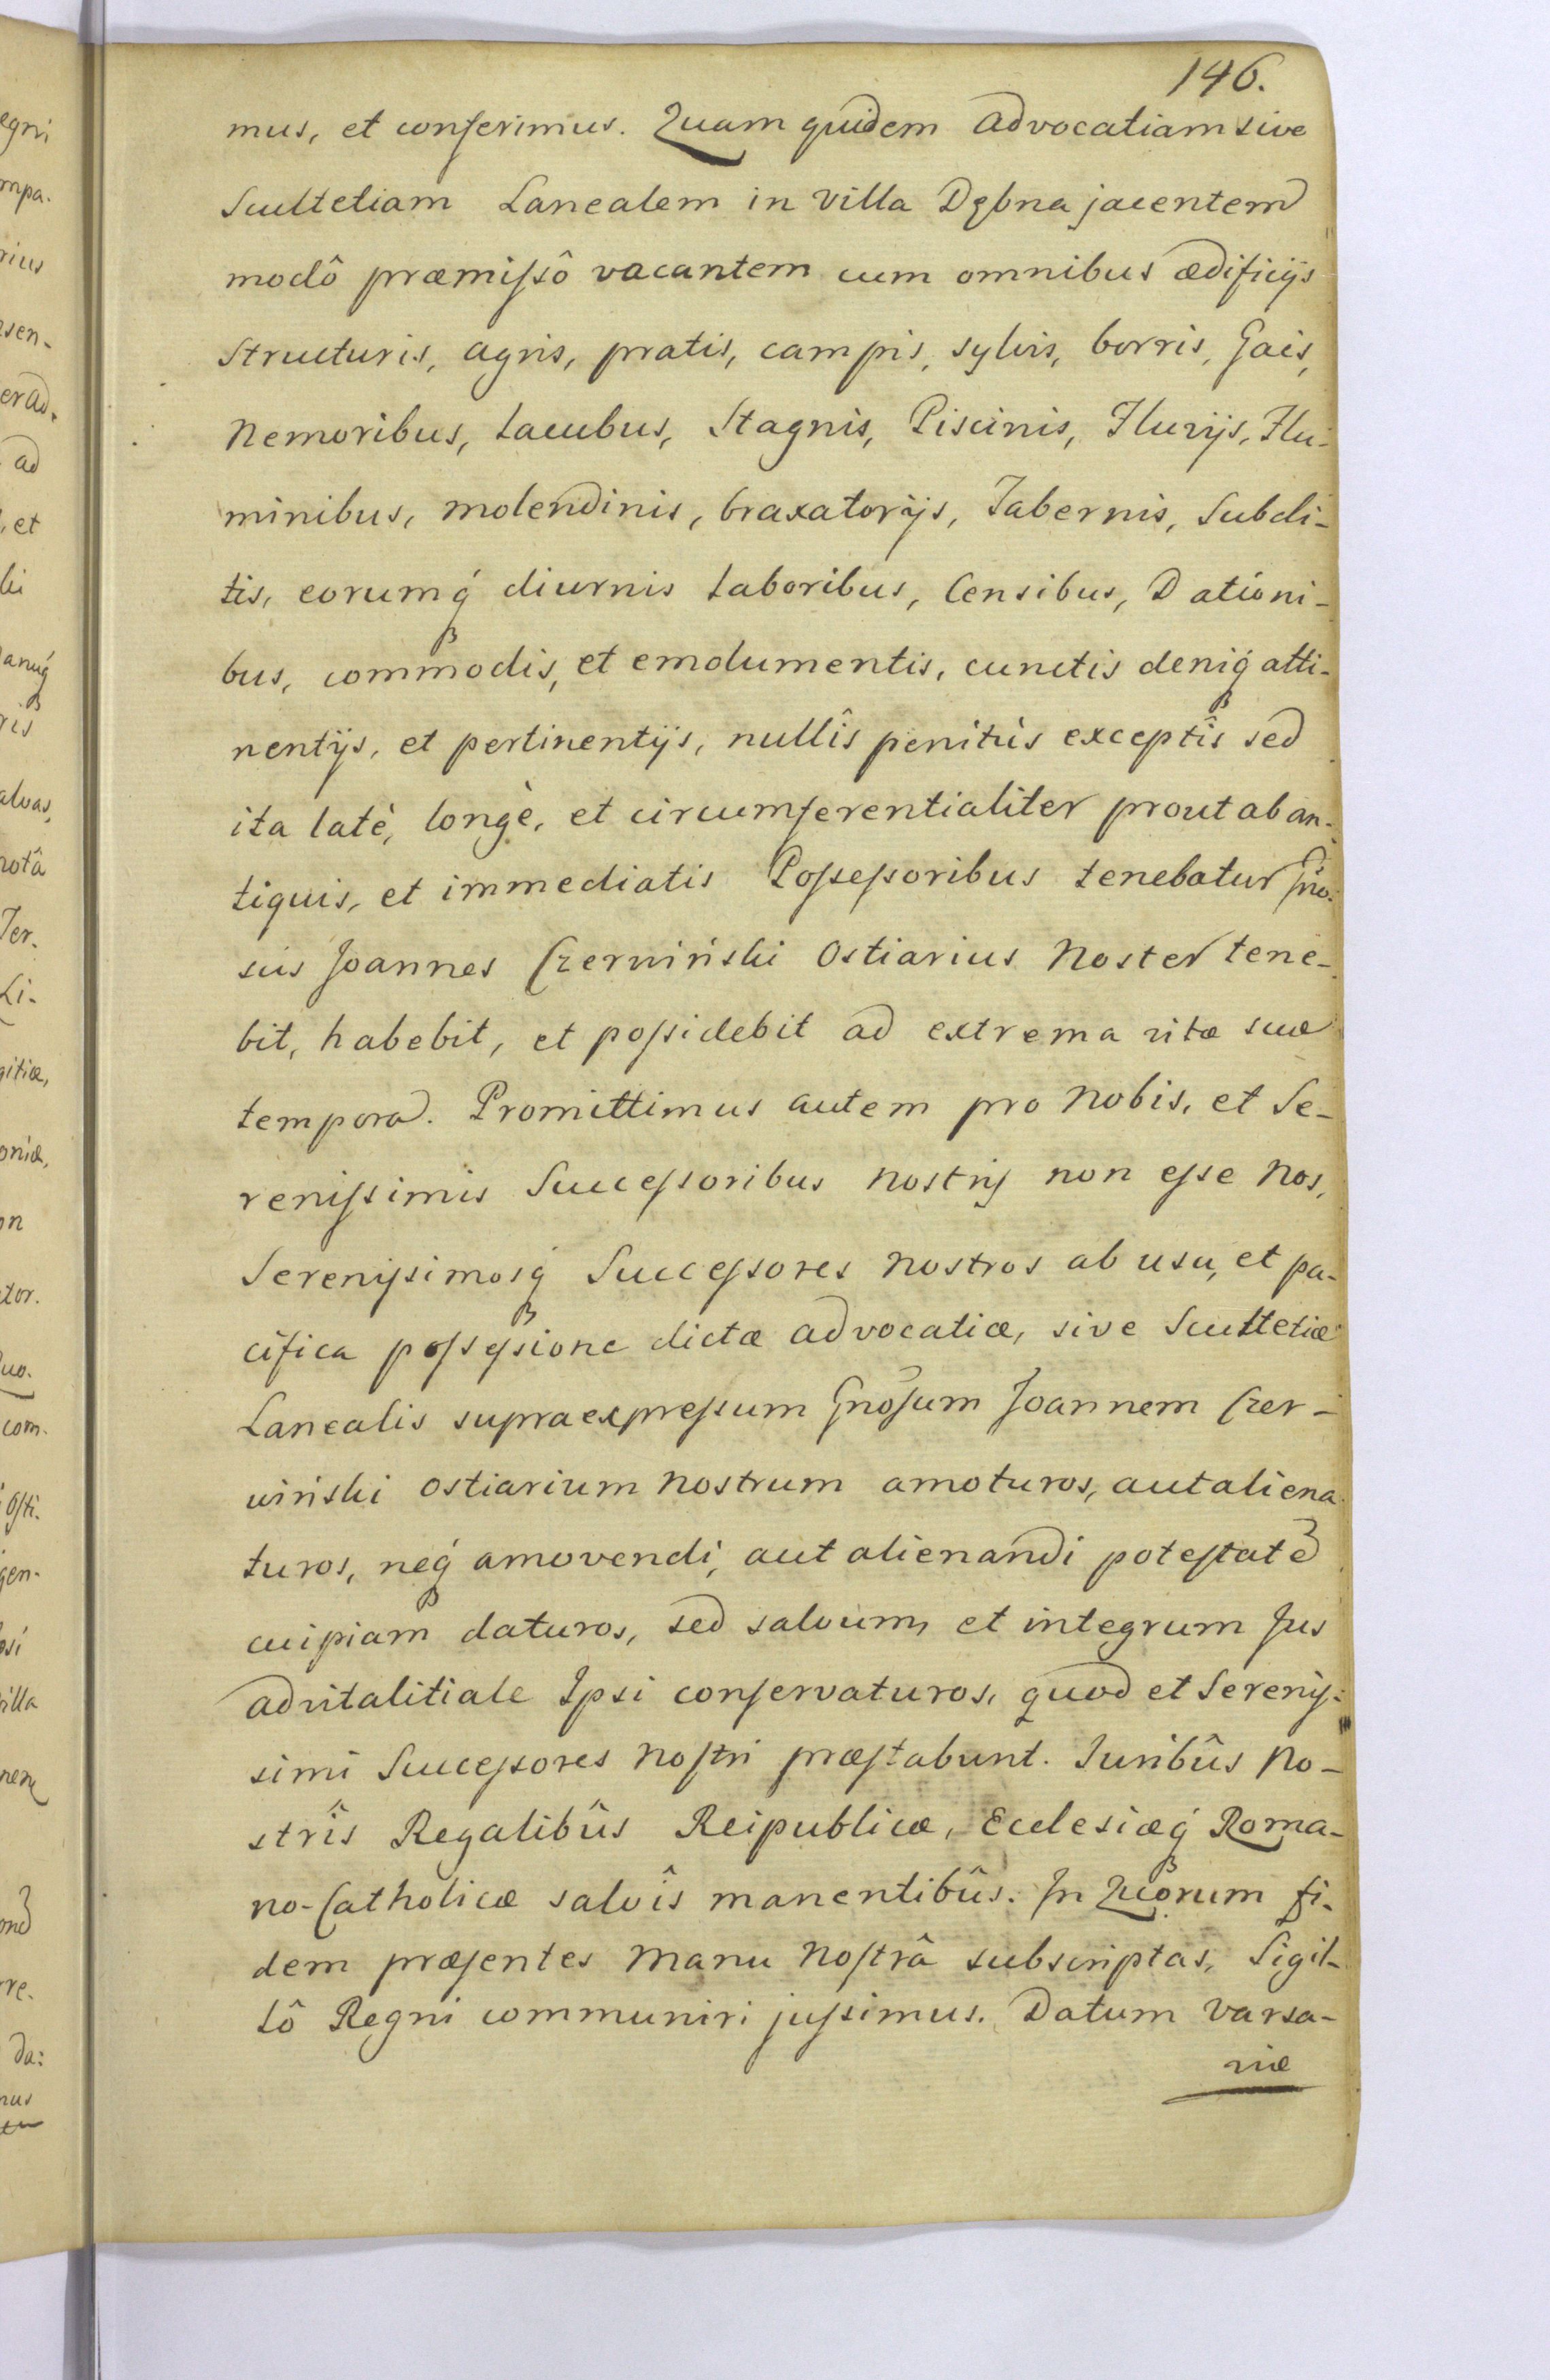 146.
mus, et conferimus. Quam quidem advocatiam sive
Scultetiam Lanealem in villa Dębna jacentem
modô præmiſsô vacantem cum omnibus ædificijs
structuris, agris, pratis, campis, sylvis, borris, Gais,
Nemoribus, Lacubus, Stagnis, Piscinis, Fluvijs, Flu-
minibus, molendinis, braxatorijs, Tabernis, Subdi-
tis, eorumq́ diurnis laboribus, Censibus, Dationi-
bus, commodis, et emolumentis, cunctis deniq́ atti-
nentijs, et pertinentijs, nullîs penitùs exceptîs sed
ita latè, longè, et circumferentialiter prout ab an-
tiquis, et immediatis Poſseſsoribus tenebatur Gño-
sus Joannes Czerwiński Ostiarius Noster tene-
bit, habebit, et poſsidebit ad extrema vitæ suæ
tempora. Promittimus autem pro Nobis, et Se-
reniſsimis Succeſsoribus Nostris non eſse Nos,
Sereniſsimosq́ Succeſsores Nostros ab usu, et pa-
cifica poſseſsione dictæ advocatiæ, sive Scultetiæ
Lanealis supraexpreſsum Gnõſum Joannem Czer-
wiński Ostiarium Nostrum amoturos, aut aliena
turos, neq́ amovendi, aut alienandi poteſtatē
cuipiam daturos, sed salvum, et integrum Jus
advitalitiale Ipsi conſervaturos, quod et Sereniſ-
simi Succeſsores Noſtri præſtabunt. Juribûs No-
strîs Regalibûs Reipublicæ, Ecclesiæq́ Roma-
no-Catholicæ salvîs manentibûs. In Quorum fi-
dem præſentes Manu Noſtrâ subscriptas, Sigil-
lô Regni communiri juſsimus. Datum Varsa-
viæ